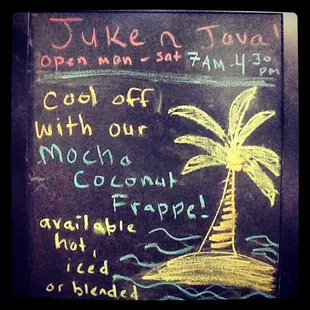 Juke n Java!
open mon - sat 7AM - 4:30 pm
cool off
with our
Mocha
Coconut
Frappe!
available
hot,
iced
or blended